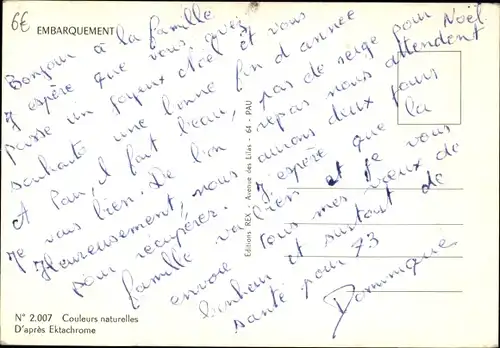 6€
EMBARQUEMENT
Bonjour à la famille
J'espère que vous avez
passé un joyeux Noël et vous
souhaite une bonne fin d'année
A Pau, il fait beau, pas de neige pour Noël.
Je vais bien. De bon repas nous attendent
Heureusement, nous aurons deux jours
pour récupérer. J'espère que la
famille va bien et je vous
envoie tous mes vœux de
bonheur et surtout de
santé pour 73
Dominique
Editions REX - Avenue des Lilas - 64 - PAU
N° 2.007 Couleurs naturelles
D'après Ektachrome